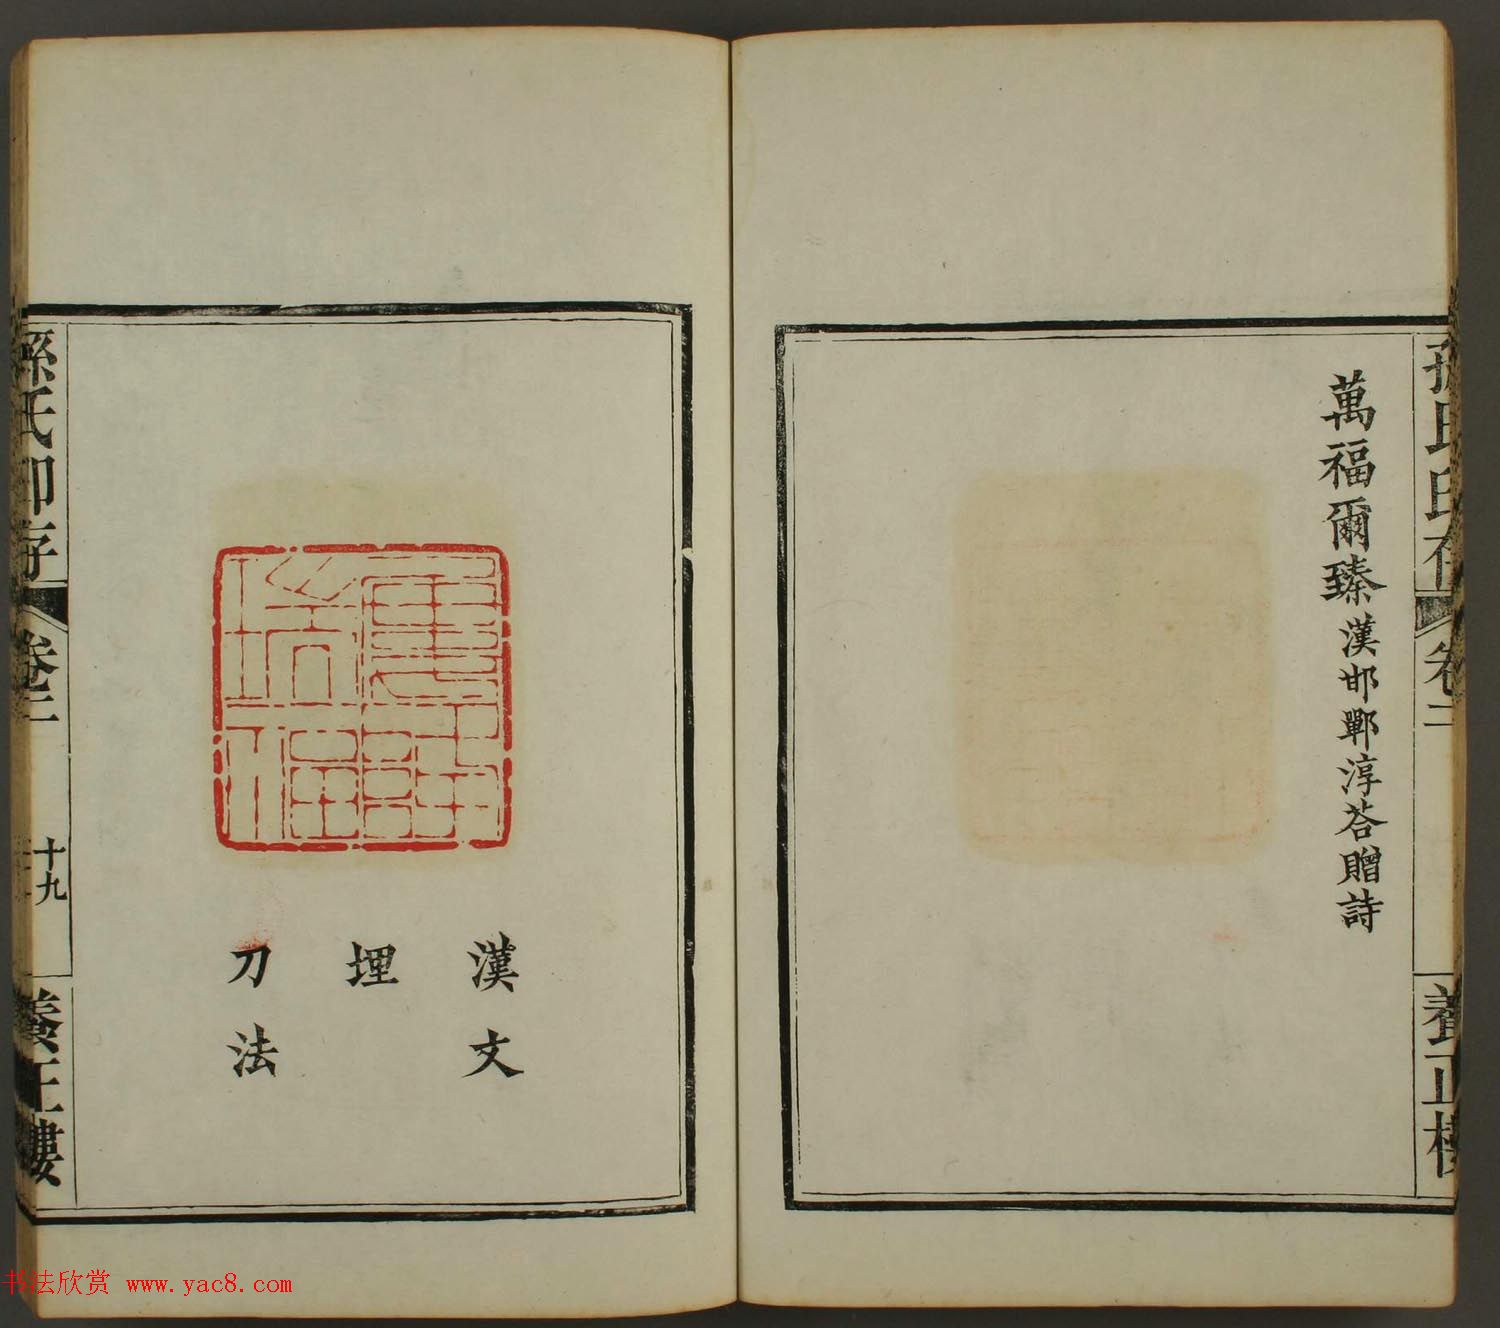 孫氏印存
卷二
養正樓
萬福爾臻漢邯鄲淳荅贈詩
漢文
埋
刀法
孫氏印存
卷二
十九
養正樓
书法欣赏 www.yac8.com